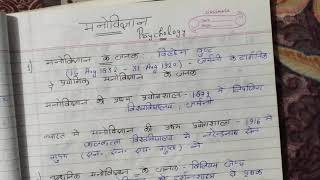 मनोविज्ञान
Psychology
1) मनोविज्ञान के जनक विल्हेम वुण्ट
(16 Aug 1832 - 31 Aug 1920) - जर्मनी के दार्शनिक
ये प्रयोगिक मनोविज्ञान के जनक
मनोविज्ञान की प्रथम प्रयोगशाला - 1879 में लिपजिंग
विश्वविद्यालय, जर्मनी
भारत में मनोविज्ञान की प्रथम प्रयोगशाला - 1916 में
कलकत्ता विश्वविद्यालय में नरेन्द्रनाथ सेन
गुप्ता (एन. एन. सेन गुप्ता) ने
मनोविज्ञान के जनक - विलियम जेम्स